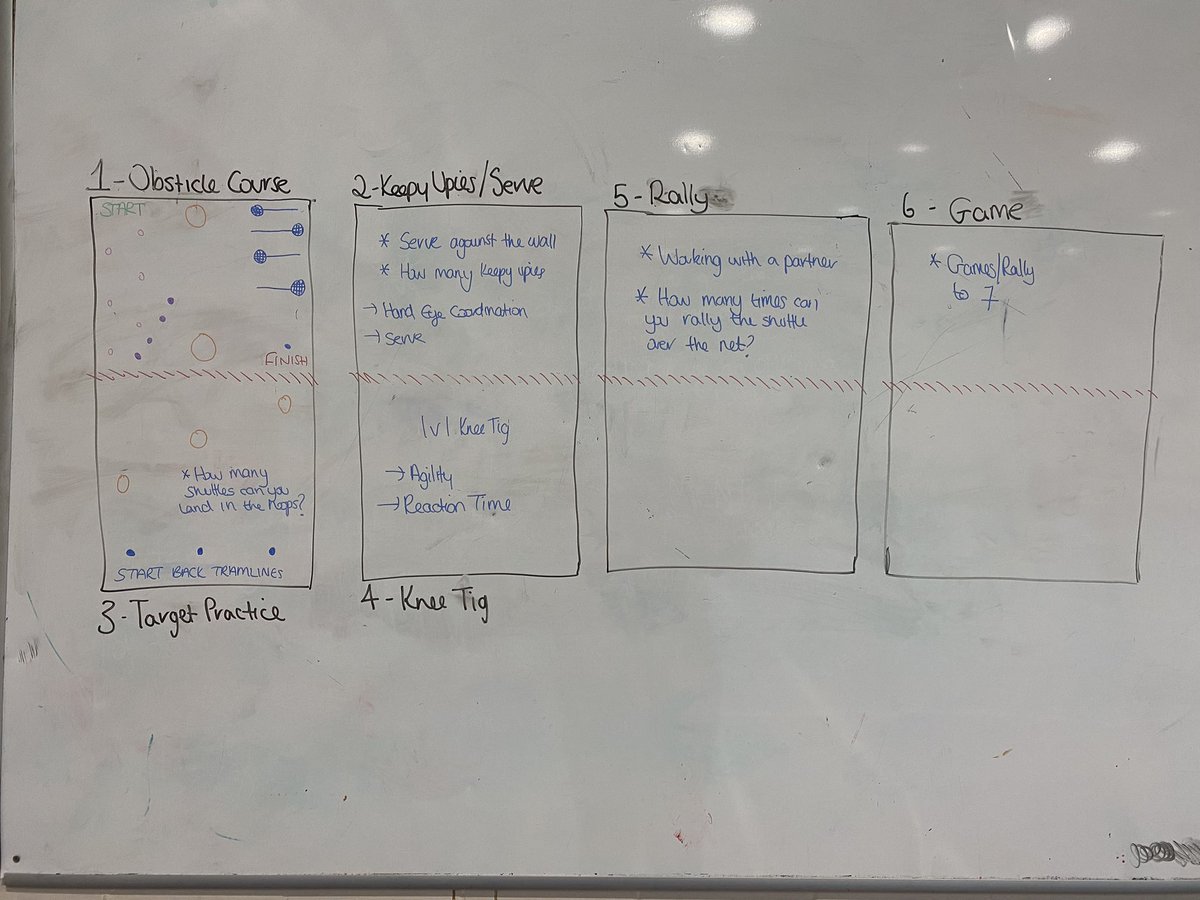 1 - Obsticle Course
START
FINISH
* How many
shuttles can you
land in the hoops?
START BACK TRAMLINES
3 - Target Practice
2 - Keepy Upies/Serve
* Serve against the wall
* How many keepy upies
→ Hand Eye Coordination
→ Serve
1v1 Knee Tig
→ Agility
→ Reaction Time
4 - Knee Tig
5 - Rally
* Working with a partner
* How many times can
you rally the shuttle
over the net?
6 - Game
* Games/Rally
to 7